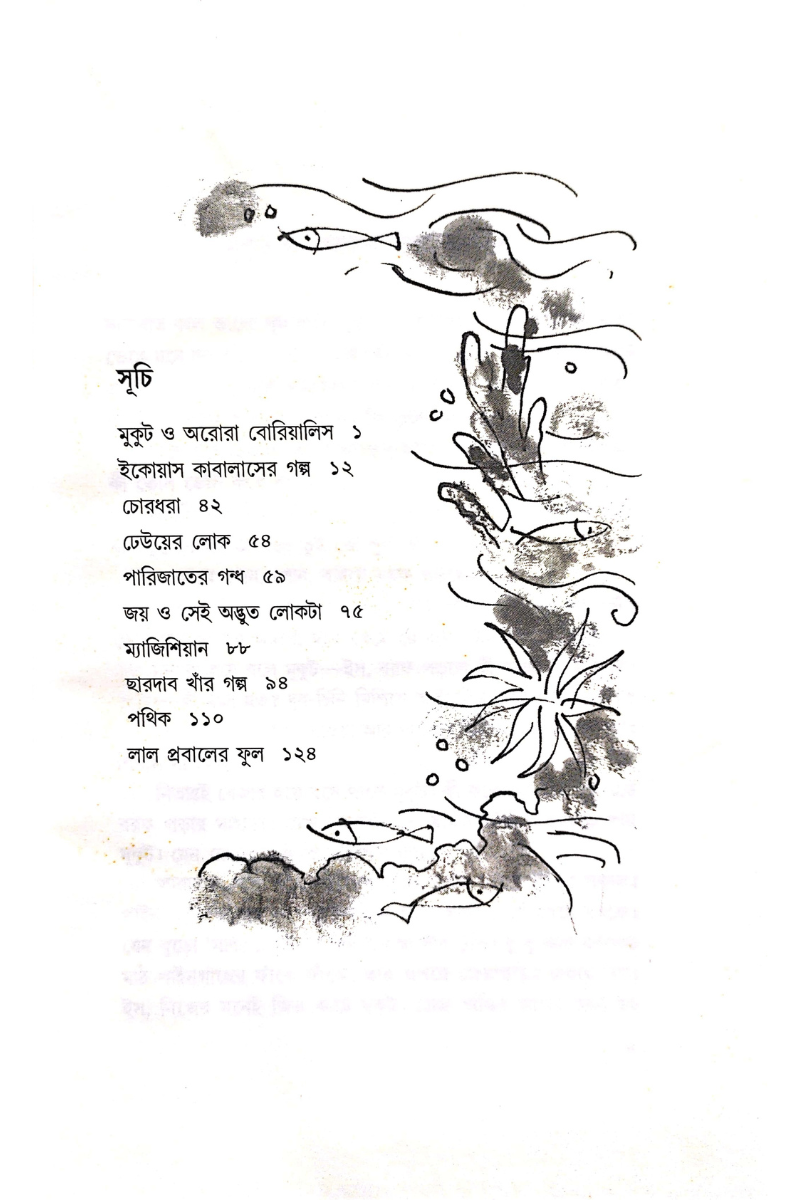 সূচি
মুকুট ও অরোরা বোরিয়ালিস ১
ইকোয়াস কাবালাসের গল্প ১২
চোরধরা ৪২
ঢেউয়ের লোক ৫৪
পারিজাতের গন্ধ ৫৯
জয় ও সেই অদ্ভুত লোকটা ৭৫
ম্যাজিশিয়ান ৮৮
ছারদাব খাঁর গল্প ৯৪
পথিক ১১০
লাল প্রবালের ফুল ১২৪